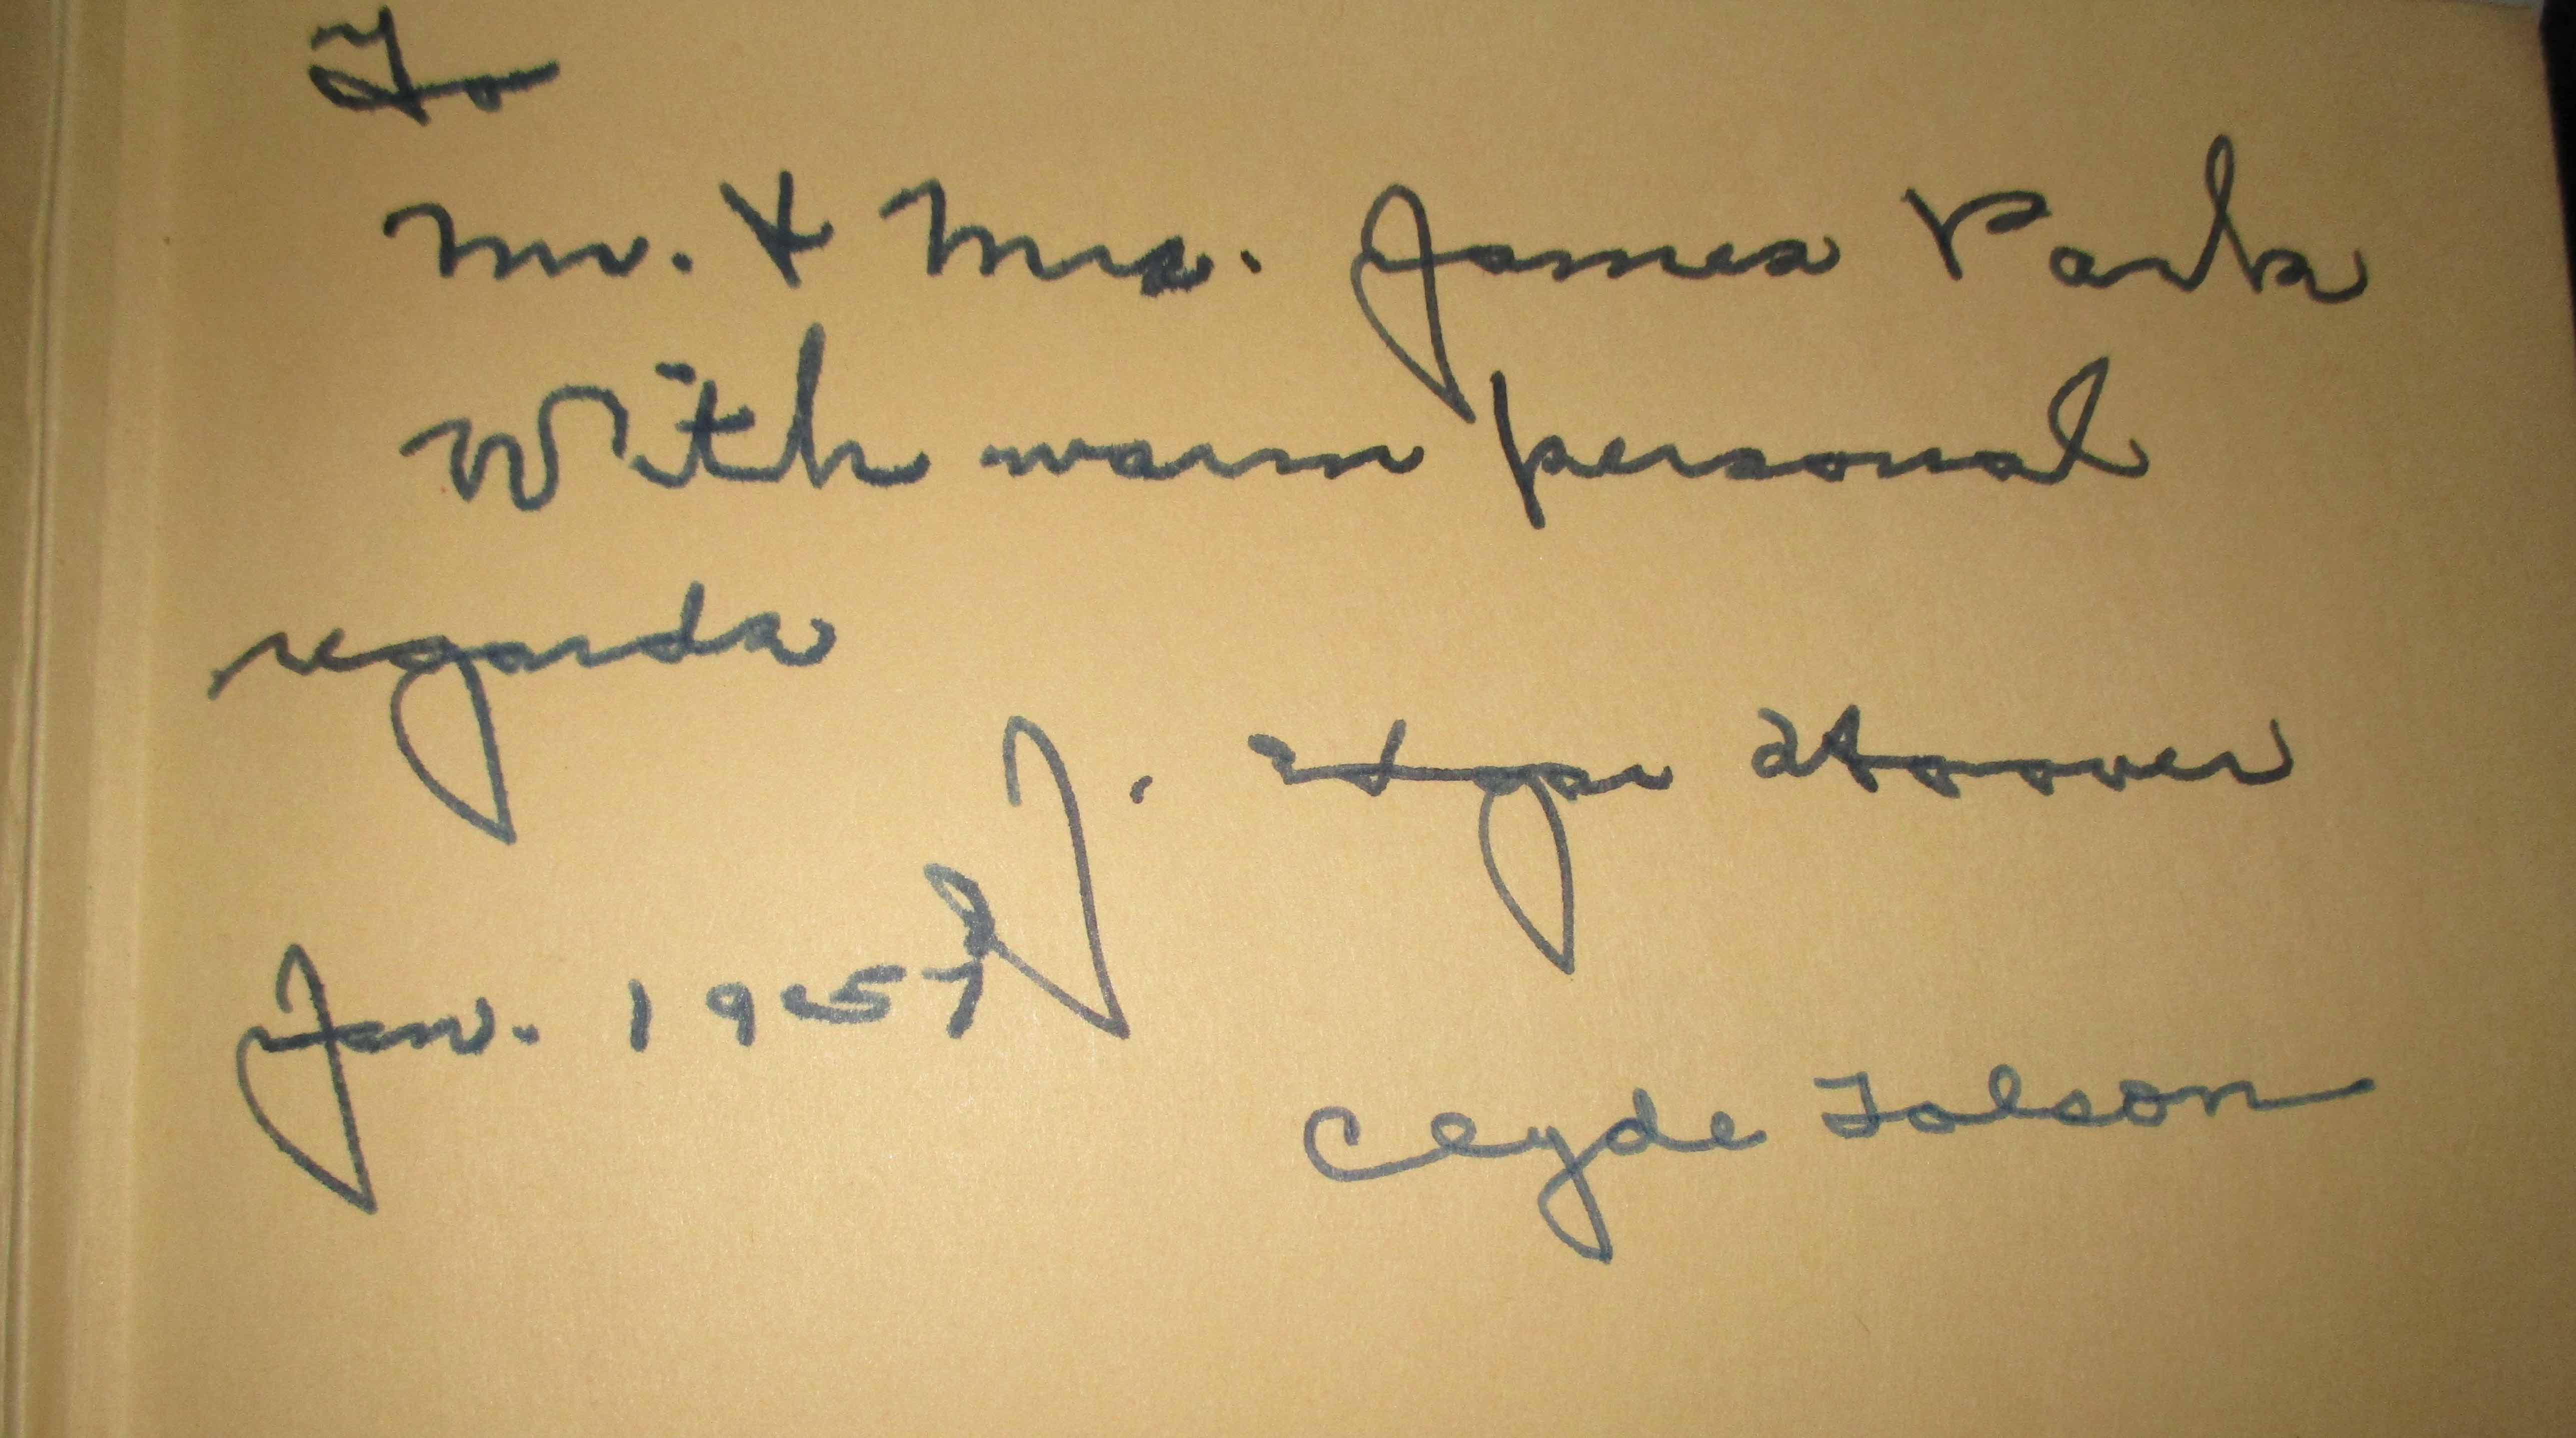 To
Mr. & Mrs. James Parks
With warm personal
regards
J. Edgar Hoover
Jan. 1957
Clyde Tolson